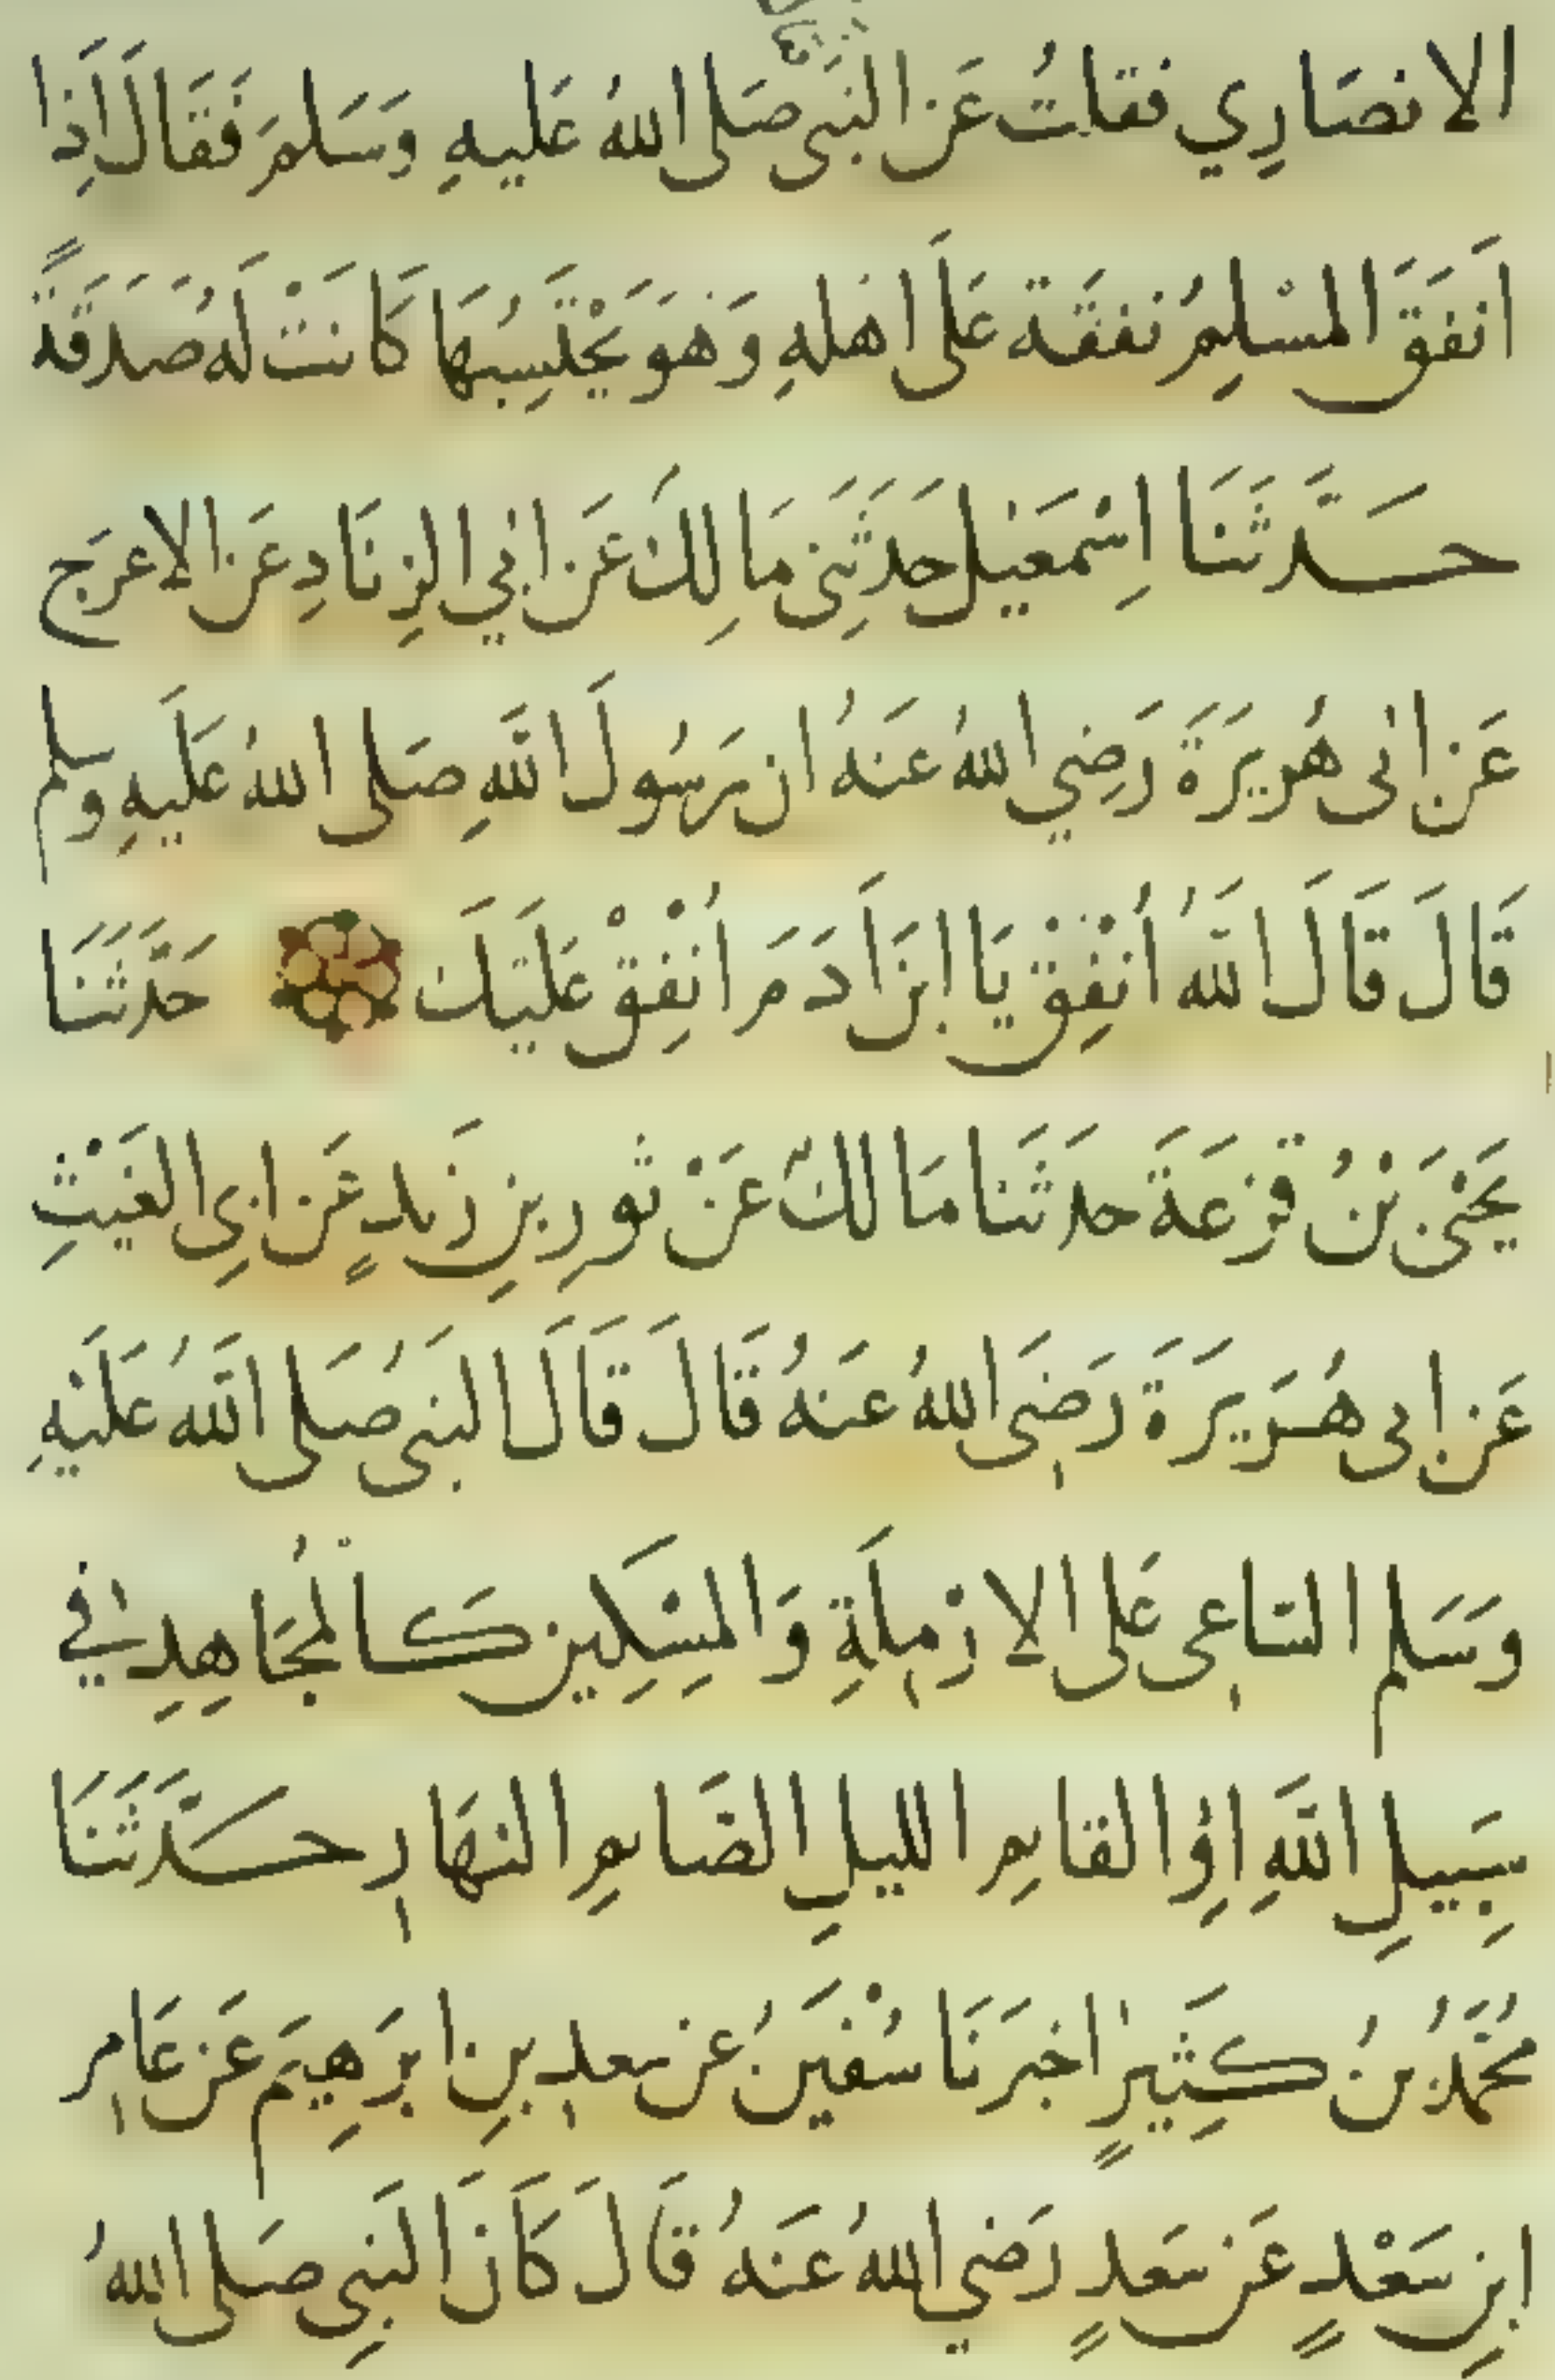 الانصَارِي فقلتُ عَن النبَى صَلى اللهُ عَليهِ وَسَلمَ فَقَالَ اَذِا
اَنفَقَ المسْلِمُ نفقَة عَلَى اهْلهِ وَهُوَ يَحْتَسِبُهَا كَانَتْ لَهُ صَدَقَةً
حَدَّثَنَا اِسْمَعيل حَدَثَنِى مَالِكُ عَن ابي الزِنَادِ عَن الاعرَج
عَن ابى هُرَيرَةَ رَضِي اللهُ عَنهُ ان رَسُولَ اللَّهِ صَلى اللهُ عَلَيهِ وسلم
قَالَ قَالَ اللَّهُ أنْفِقْ يَا ابنَ اَدَمَ أنْفِقْ عَلَيكَ حَدَّثَنَا
يَحْيَى بْنُ قزعَةَ حدثَنَا مَالكٌ عَنْ ثورِ بنِ زَيدٍ عَن ابِى الغَيْثِ
عَن ابى هُرَيرَةَ رَضِىَ اللهُ عَنهُ قَالَ قَالَ النبى صَلى اللَّهُ عَلَيْهِ
وَسَلم السَاعِى عَلى الارْمِلَةِ وَالمسْكِين كَالْمُجَاهِدِ في
سَبِيلِ اللَّهِ اوِ القايمِ الليلِ الصَايمِ النهَارِ حَدَّثَنَا
مُحَمَّدُ بنُ كَثِيرٍ اخبَرَنَا سُفْيَنُ عَن سعدِ بنِ ابرَهِيَم عَن عَامِر
ابنِ سَعْدٍ عَن سَعدٍ رَضي اللهُ عَنهُ قَالَ كَانَ النَبِى صَلى اللهُ